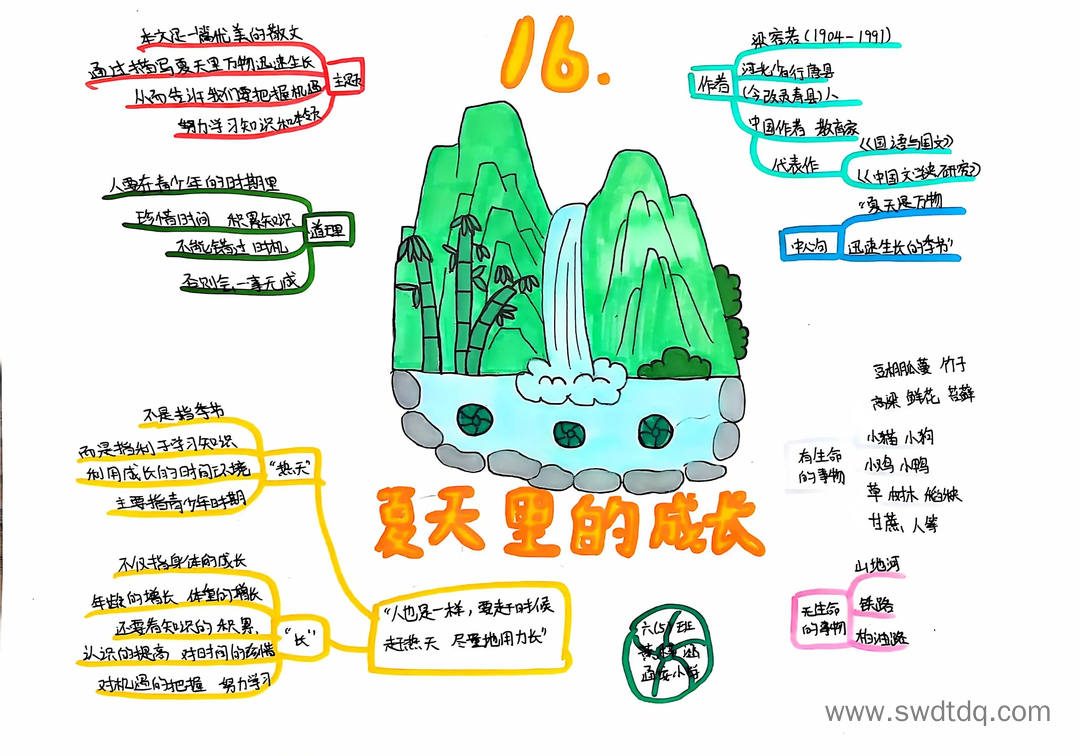 16.
夏天里的成长
主题
本文是一篇优美的散文
通过描写夏天里万物迅速生长
从而告诉我们要把握机遇
努力学习知识和本领
道理
人要在青少年的时期里
珍惜时间 积累知识
不能错过时机
否则会一事无成
作者
梁容若(1904-1991)
河北省行唐县
(今改灵寿县)人
中国作者 教育家
代表作
《国语与国文》
《中国文学史研究》
中心句
"夏天是万物
迅速生长的季节"
有生命
的事物
豆棚瓜蔓 竹子
高粱 鲜花 苔藓
小猫 小狗
小鸡 小鸭
草 树木
甘蔗、人等
无生命
的事物
山地河
铁路
柏油路
"人也是一样,要赶时候
赶热天 尽量地用力长"
"热天"
不是指季节
而是指利于学习知识
利用成长的时间环境
主要指青少年时期
"长"
不仅指身体的成长
年龄的增长 体型的增长
还要有知识的积累,
认识的提高 对时间的珍惜
对机遇的把握 努力学习
六(5)班
www.swdtdq.com